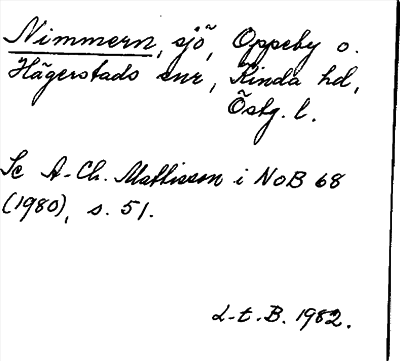 Nimmern, sjö, Oppeby o.
Hägerstads snr, Kinda hd,
Östg. l.
Se A-Ch. Mattisson i NoB 68
(1980), s. 51.
L-t. B. 1982.